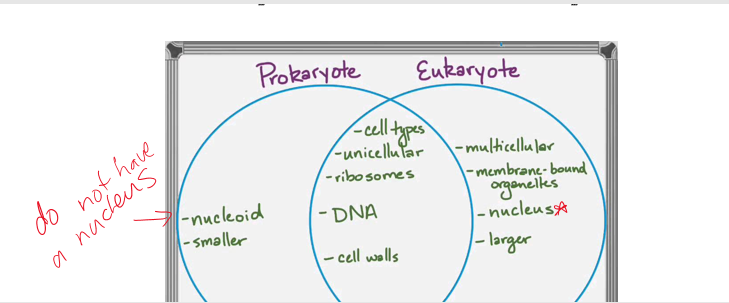 Prokaryote
Eukaryote
do not have
a nucleus
- nucleoid
- smaller
- cell types
- unicellular
- ribosomes
- DNA
- cell walls
- multicellular
- membrane-bound
organelles
- nucleus
- larger